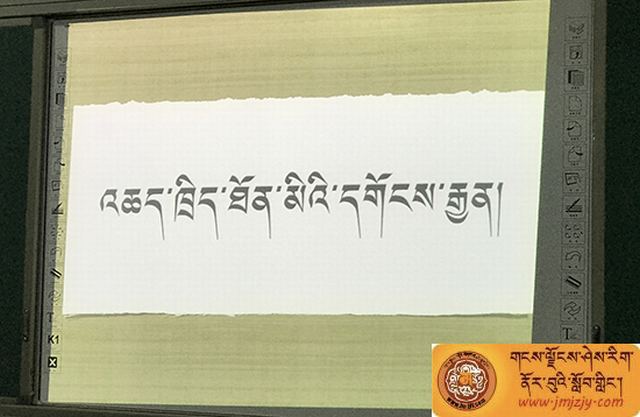 འཆད་ཁྲིད་ཐོན་མིའི་དགོངས་རྒྱན།
K1
T
གངས་ལྗོངས་ཤེས་རིག་
ནོར་བུའི་སློབ་གླིང་།
www.jmjzjy.com